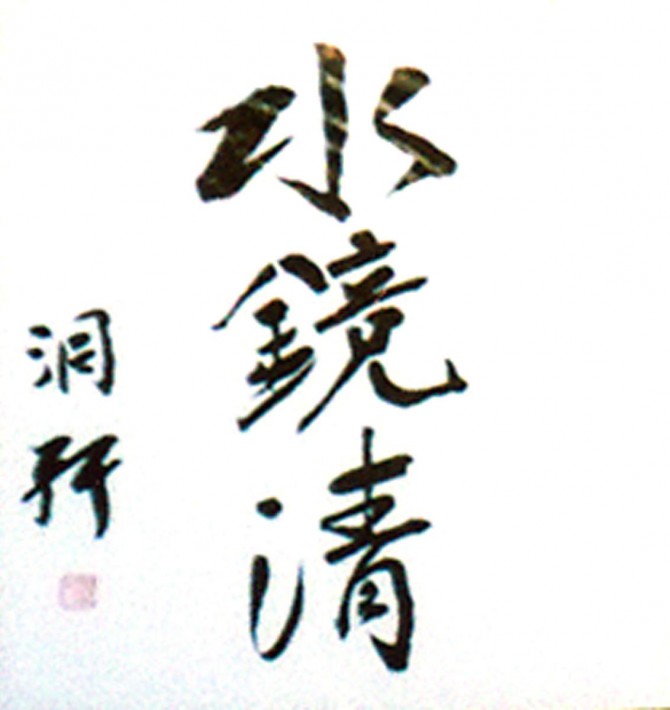 水鏡清
洞